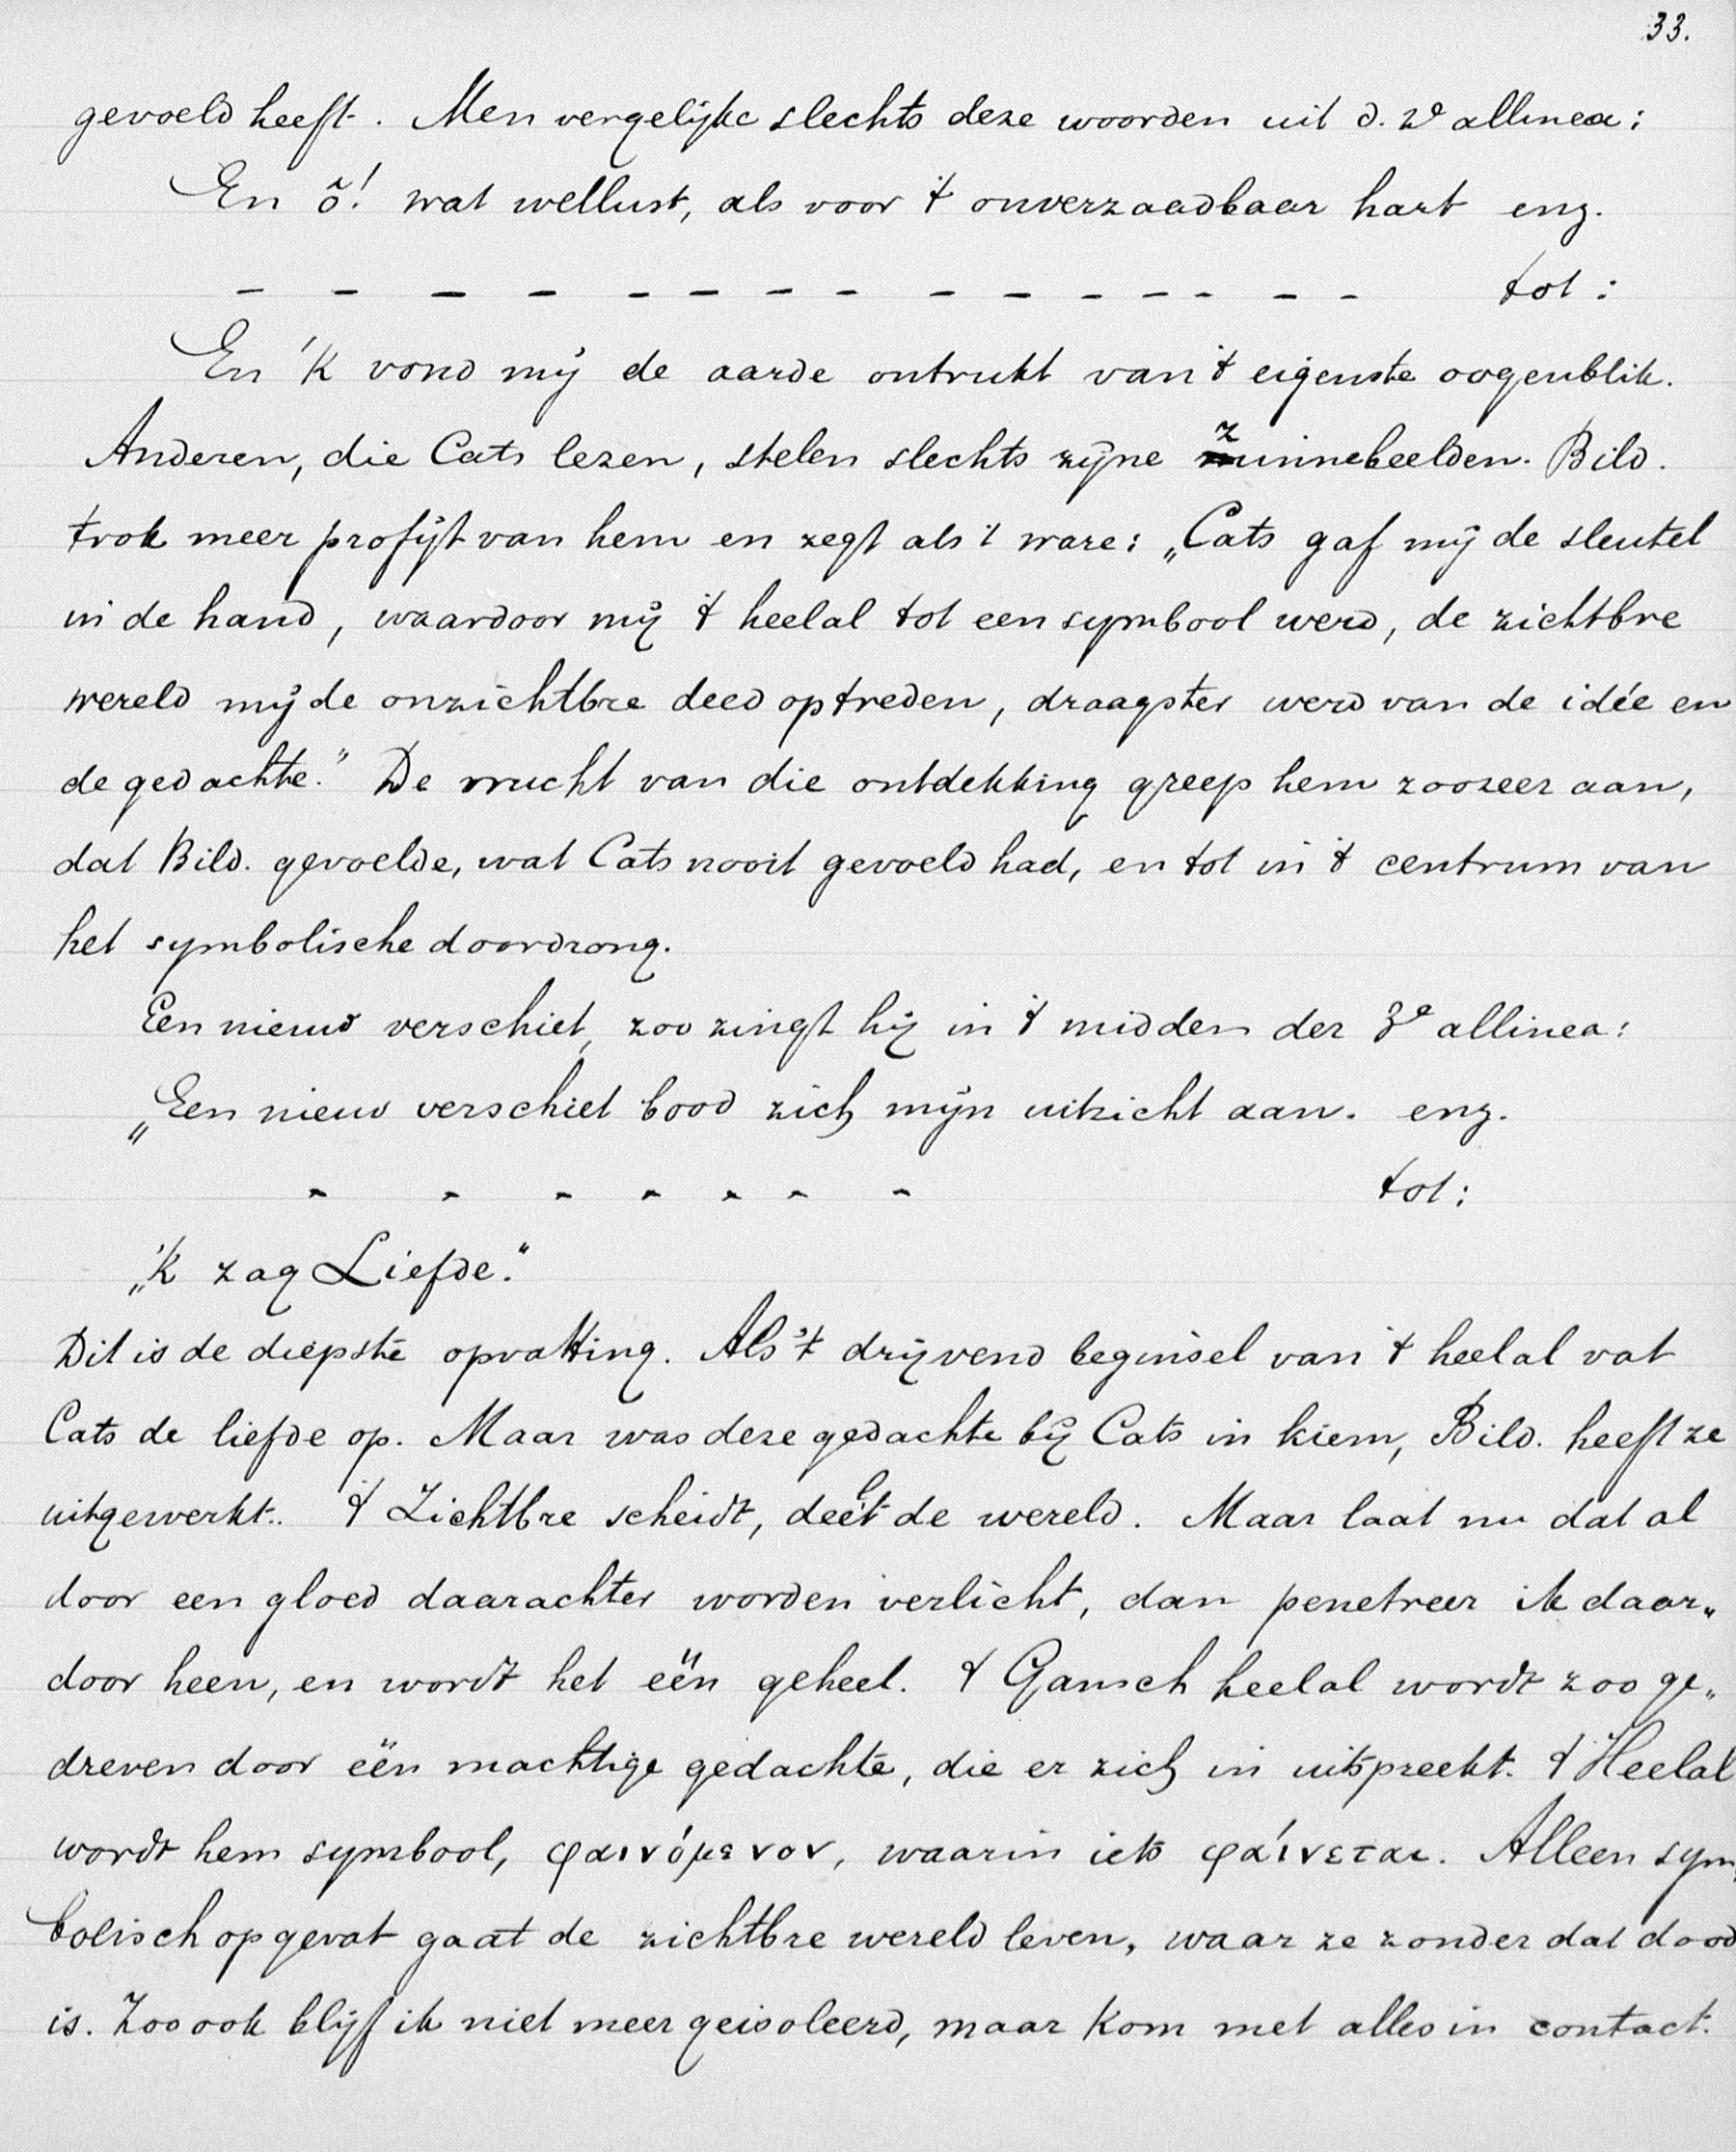 33.
gevoeld heeft. Men vergelijke slechts deze woorden uit d. 2e allinea:
En õ! wat wellust, als voor 't onverzaadbaar hart enz.
– – – – – – – – – – – – – – – tot:
En 'k vond mij de aarde ontrukt van 't eigenste oogenblik.
Anderen, die Cats lezen, stelen slechts zijne zinnebeelden. Bild.
trok meer profijt van hem en zegt als 't ware: „Cats gaf mij de sleutel
in de hand, waardoor mij 't heelal tot een symbool werd, de zichtbre
wereld mij de onzichtbre deed optreden, draagster werd van de idée en
de gedachte." De vrucht van die ontdekking greep hem zoozeer aan,
dat Bild. gevoelde, wat Cats nooit gevoeld had, en tot in 't centrum van
het symbolische doordrong.
Een nieuw verschiet, zoo zingt hij in 't midden der 3e allinea:
„Een nieuw verschiet bood zich mijn uitzicht aan. enz.
- - - - - - - tot:
„'k zag Liefde."
Dit is de diepste opvatting. Als 't drijvend beginsel van 't heelal vat
Cats de liefde op. Maar was deze gedachte bij Cats in kiem, Bild. heeft ze
uitgewerkt. 't Zichtbre scheidt, deelt de wereld. Maar laat nu dat al
door een gloed daarachter worden verlicht, dan penetreer ik daar„
door heen, en wordt het één geheel. 't Gansch heelal wordt zoo ge„
dreven door één machtige gedachte, die er zich in uitspreekt. 't Heelal
wordt hem symbool, φαινόμενον, waarin iets φάινεται. Alleen sym„
bolisch opgevat gaat de zichtbre wereld leven, waar ze zonder dat dood
is. Zoo ook blijf ik niet meer geisoleerd, maar kom met alles in contact.